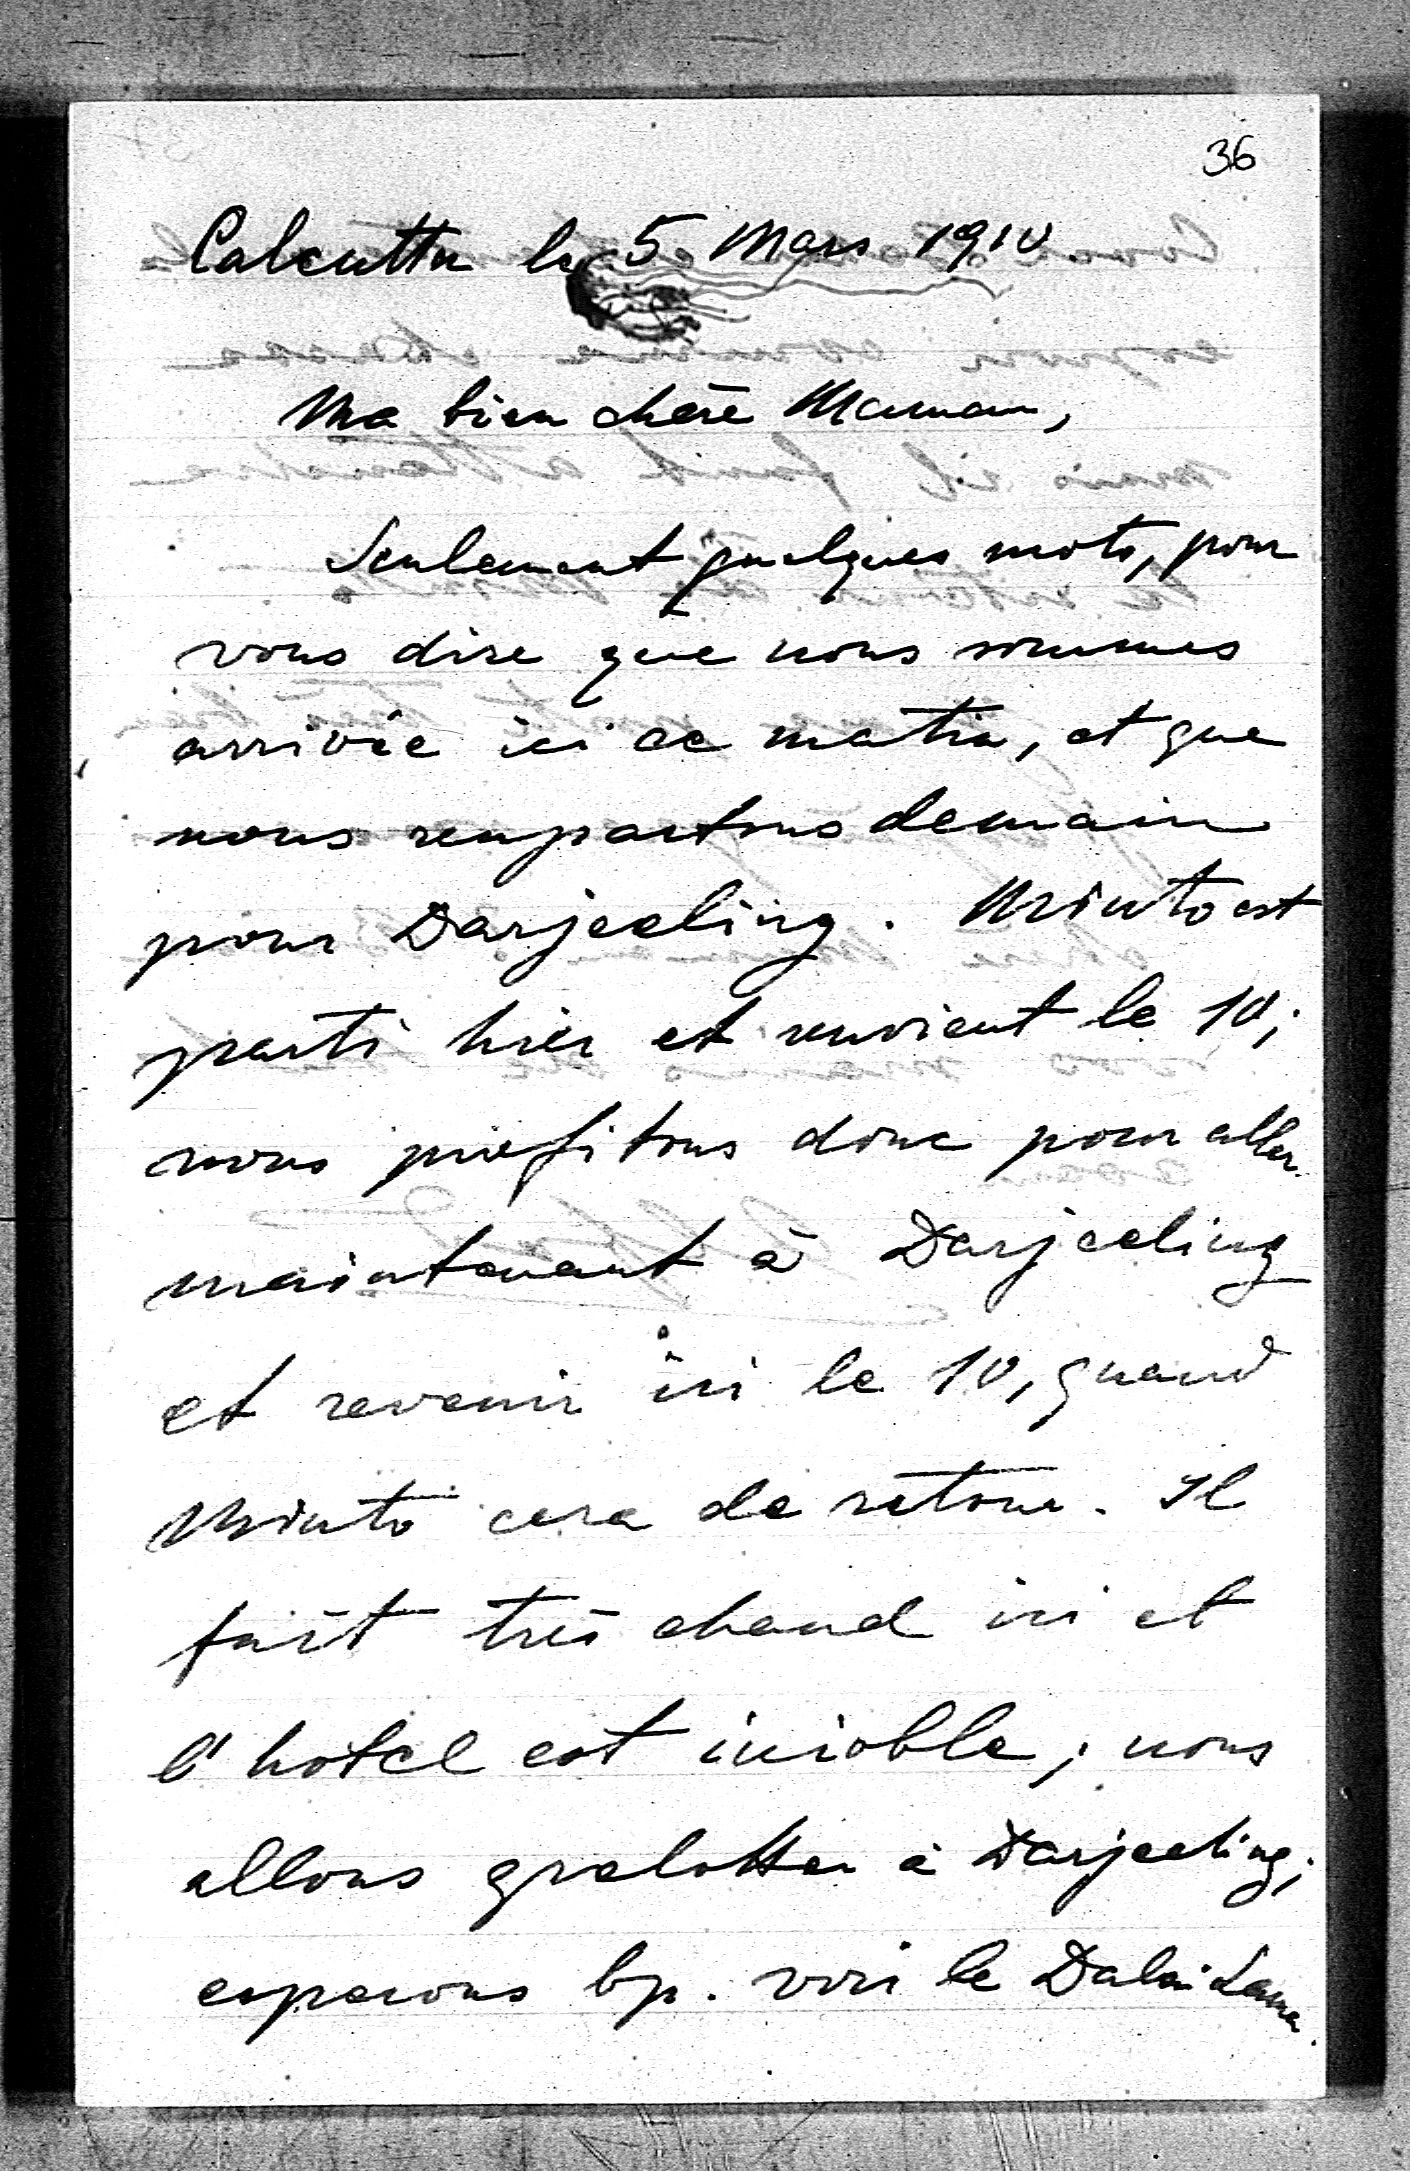 36
Calcutta le 5 Mars 1910
Ma bien chère Maman,
Seulement quelques mots, pour
vous dire que nous sommes
arrivée ici ce matin, et que
nous rempartons demain
pour Darjeeling. Minto est
parti hier et revient le 10;
nous profitons donc pour aller
maintenant à Darjeeling
et revenir ici le 10, quand
Minto cera de retour. Il
fait très chaud ici et
l'hôtel est inioble; nous
allons grelotter à Darjeeling;
esperons bp. voir le Dalai Lama.